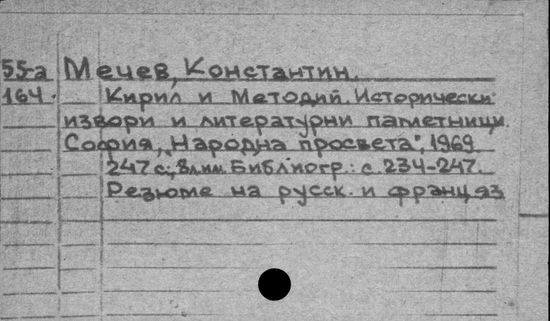 55-а Мечев, Константин.
164. Кирил и Методий. Исторически
извори и литературни паметници.
София, „Народна просвета", 1969.
247 с.; Библиогр.: с. 234-247.
Резюме на русск. и франц. яз